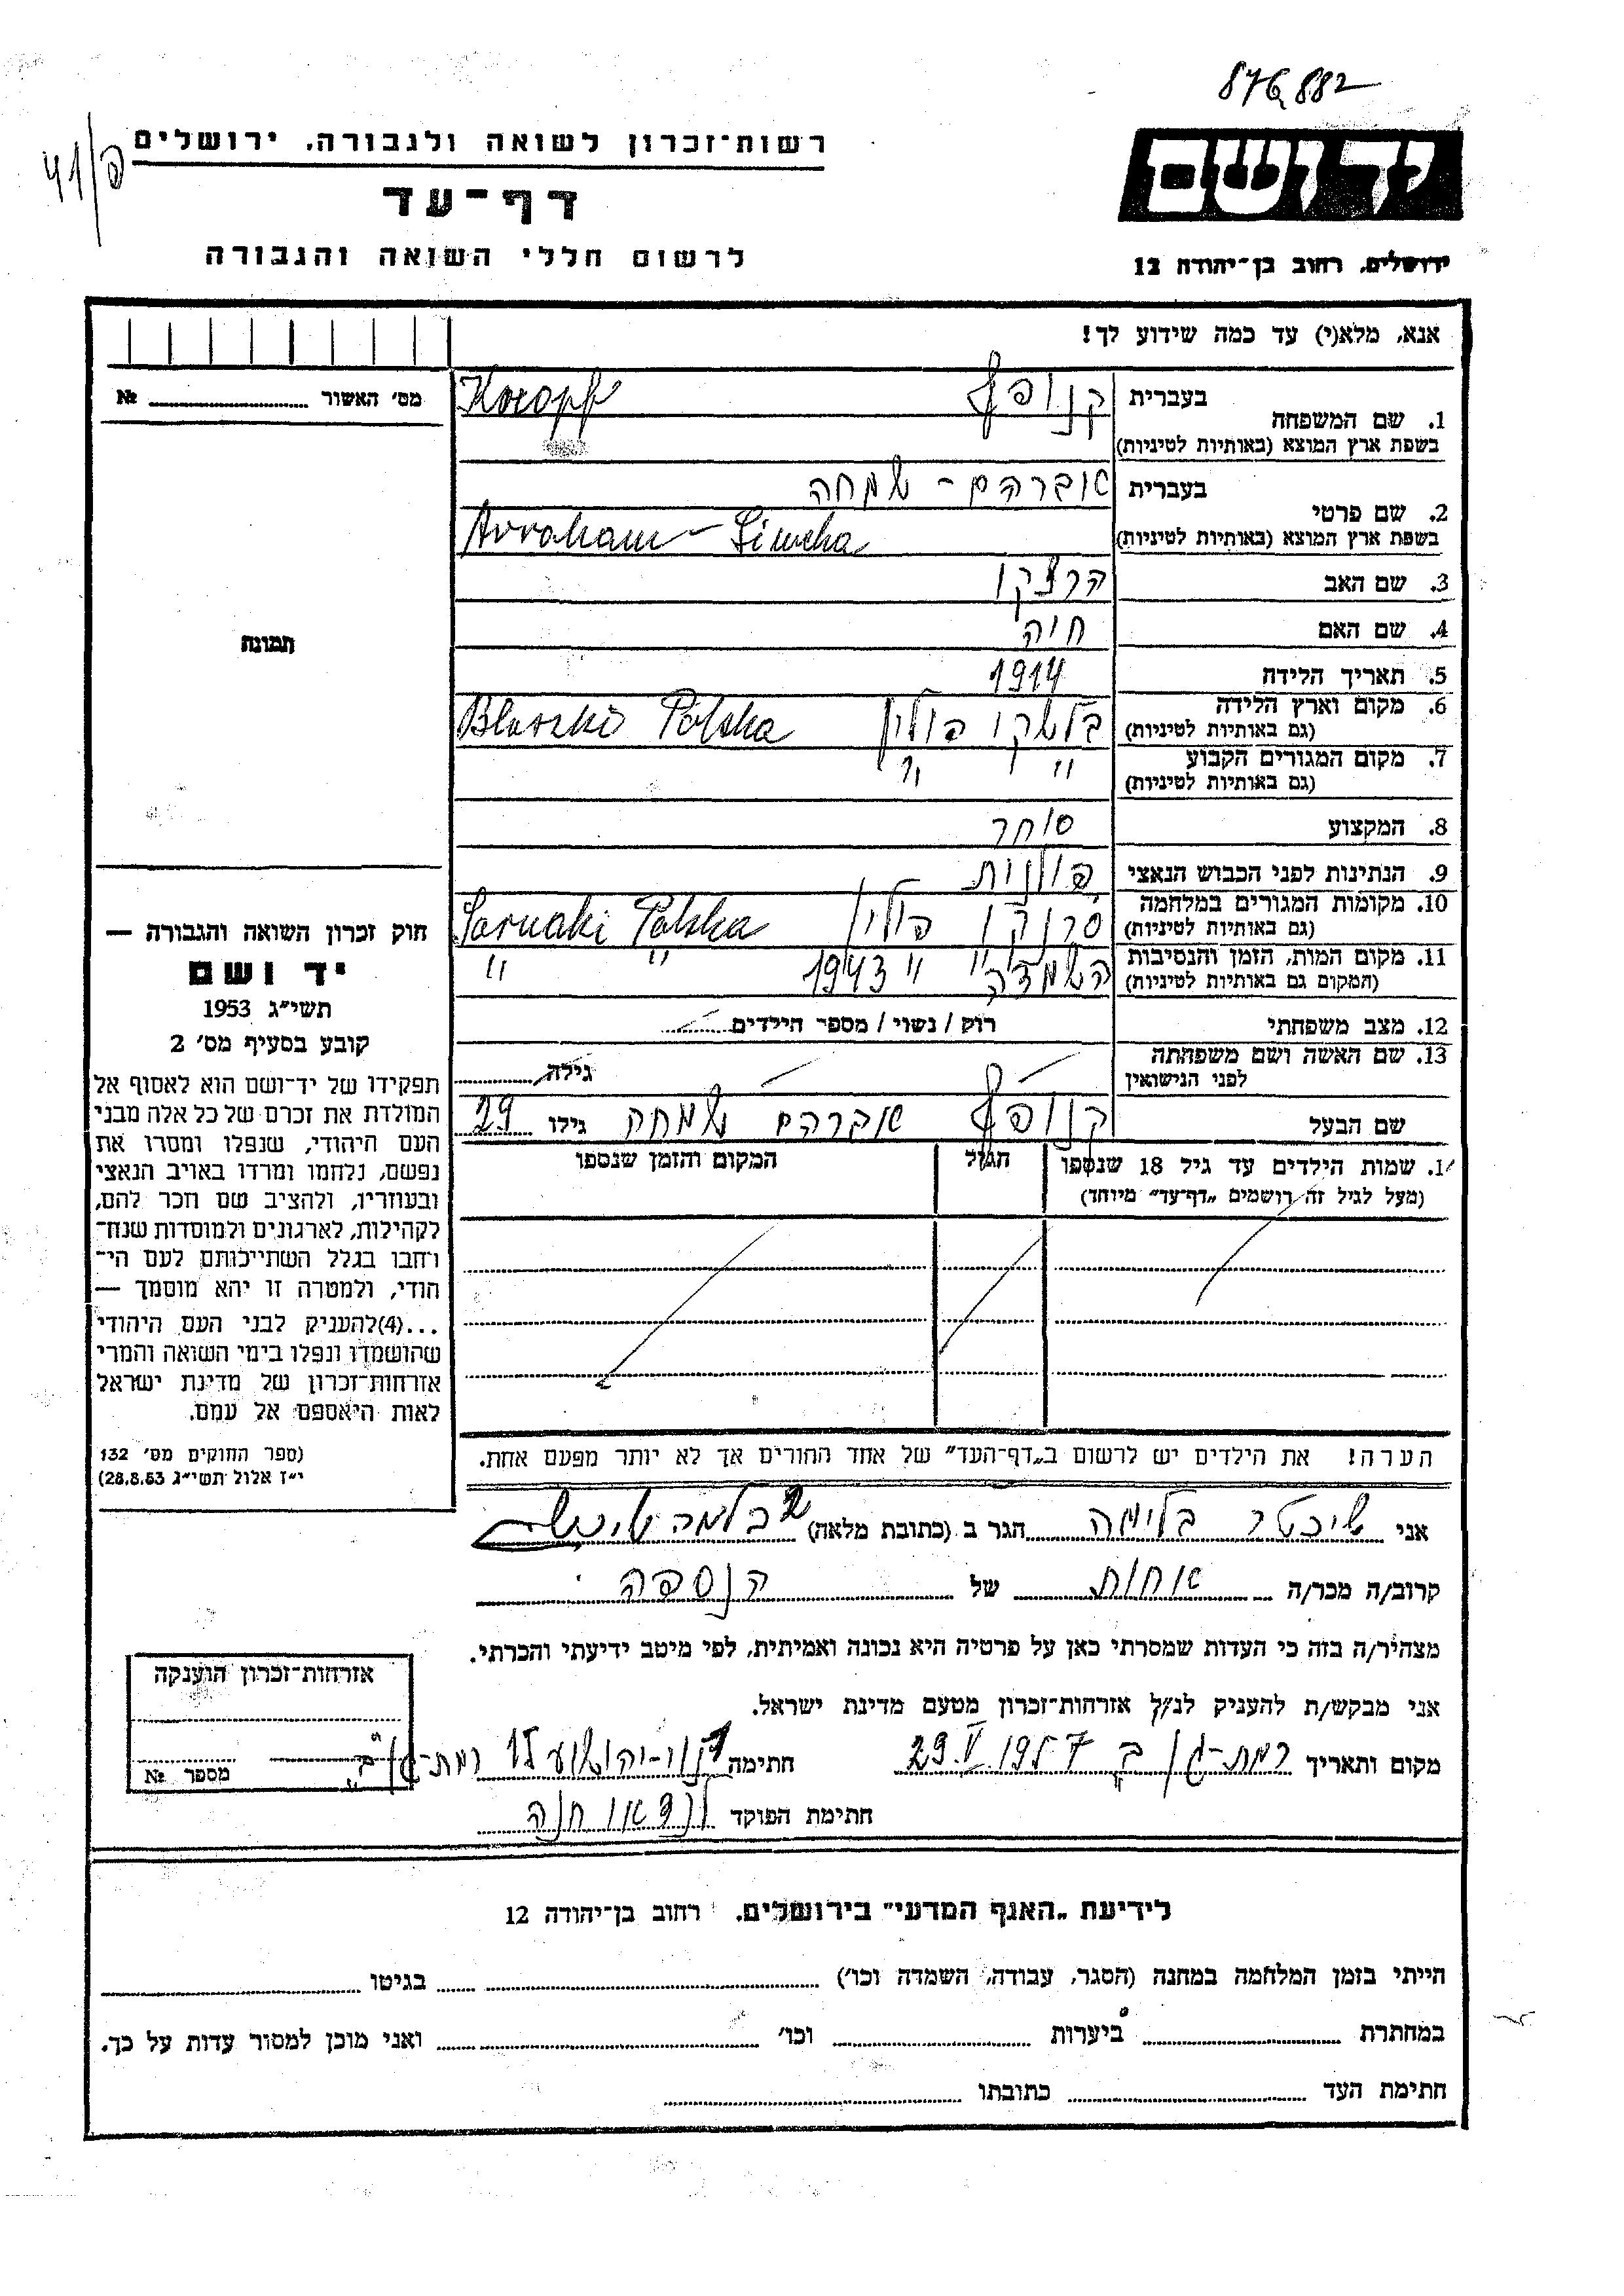 876882
41/ק
רשות־זכרון לשואה ולגבורה, ירושלים
יד ושם
דף־עד
לרשום חללי השואה והגבורה
ירושלים, רחוב בן־יהודה 12
אנא, מלא(י) עד כמה שידוע לך!
מס׳ האשור № 
1. שם המשפחה בעברית קנופף
בשפת ארץ המוצא (באותיות לטיניות) Knopf
2. שם פרטי בעברית אברהם - שמחה
בשפת ארץ המוצא (באותיות לטיניות) Avraham - Simcha
3. שם האב הרצקו
4. שם האם חיה
5. תאריך הלידה 1914
6. מקום וארץ הלידה (גם באותיות לטיניות) בלשקי פולין Blaszki Polska
7. מקום המגורים הקבוע (גם באותיות לטיניות) " "
8. המקצוע סוחר
9. הנתינות לפני הכבוש הנאצי פולנית
10. מקומות המגורים במלחמה (גם באותיות לטיניות) סרנקי פולין Sarnaki Polska
11. מקום המות, הזמן והנסיבות (המקום גם באותיות לטיניות) השמדה " " 1943 " "
12. מצב משפחתי רוק / נשוי / מספר הילדים
13. שם האשה ושם משפחתה לפני הנישואין גילה
שם הבעל קנופף אברהם שמחה גילו 29
1. שמות הילדים עד גיל 18 שנספו הגיל המקום והזמן שנספו
(מעל לגיל זה רושמים „דף־עד״ מיוחד)
הערה! את הילדים יש לרשום ב„דף־העד״ של אחד ההורים אך לא יותר מפעם אחת.
תמונה
חוק זכרון השואה והגבורה —
יד ושם
תשי״ג 1953
קובע בסעיף מס׳ 2
תפקידו של יד־ושם הוא לאסוף אל
המולדת את זכרם של כל אלה מבני
העם היהודי, שנפלו ומסרו את
נפשם, נלחמו ומרדו באויב הנאצי
ובעוזריו, ולהציב שם וזכר להם,
לקהילות, לארגונים ולמוסדות שנח־
רחבו בגלל השתייכותם לעם הי־
הודי, ולמטרה זו יהא מוסמך —
...(4)להעניק לבני העם היהודי
שהושמדו ונפלו בימי השואה והמרי
אזרחות־זכרון של מדינת ישראל
לאות היאספם אל עמם.
(ספר החוקים מס׳ 132
י״ז אלול תשי״ג 28.8.53)
אני שיכטר בלימה הגר ב (כתובת מלאה)
קרוב/ה מכר/ה אחות של הנספה
מצהיר/ה בזה כי העדות שמסרתי כאן על פרטיה היא נכונה ואמיתית, לפי מיטב ידיעתי והכרתי.
אני מבקש/ת להעניק לנ״ל אזרחות־זכרון מטעם מדינת ישראל.
מקום ותאריך רמת-גן ב 29.V.1957 חתימה נוי-יהושע 15 רמת-גן ב׳
חתימת הפוקד לנדאו חנה
אזרחות־זכרון הוענקה
מספר №
לידיעת „האגף המדעי״ בירושלים, רחוב בן־יהודה 12
הייתי בזמן המלחמה במחנה (הסגר, עבודה, השמדה וכו׳) בגיטו
במחתרת ביערות וכו׳ ואני מוכן למסור עדות על כך.
חתימת העד כתובתו